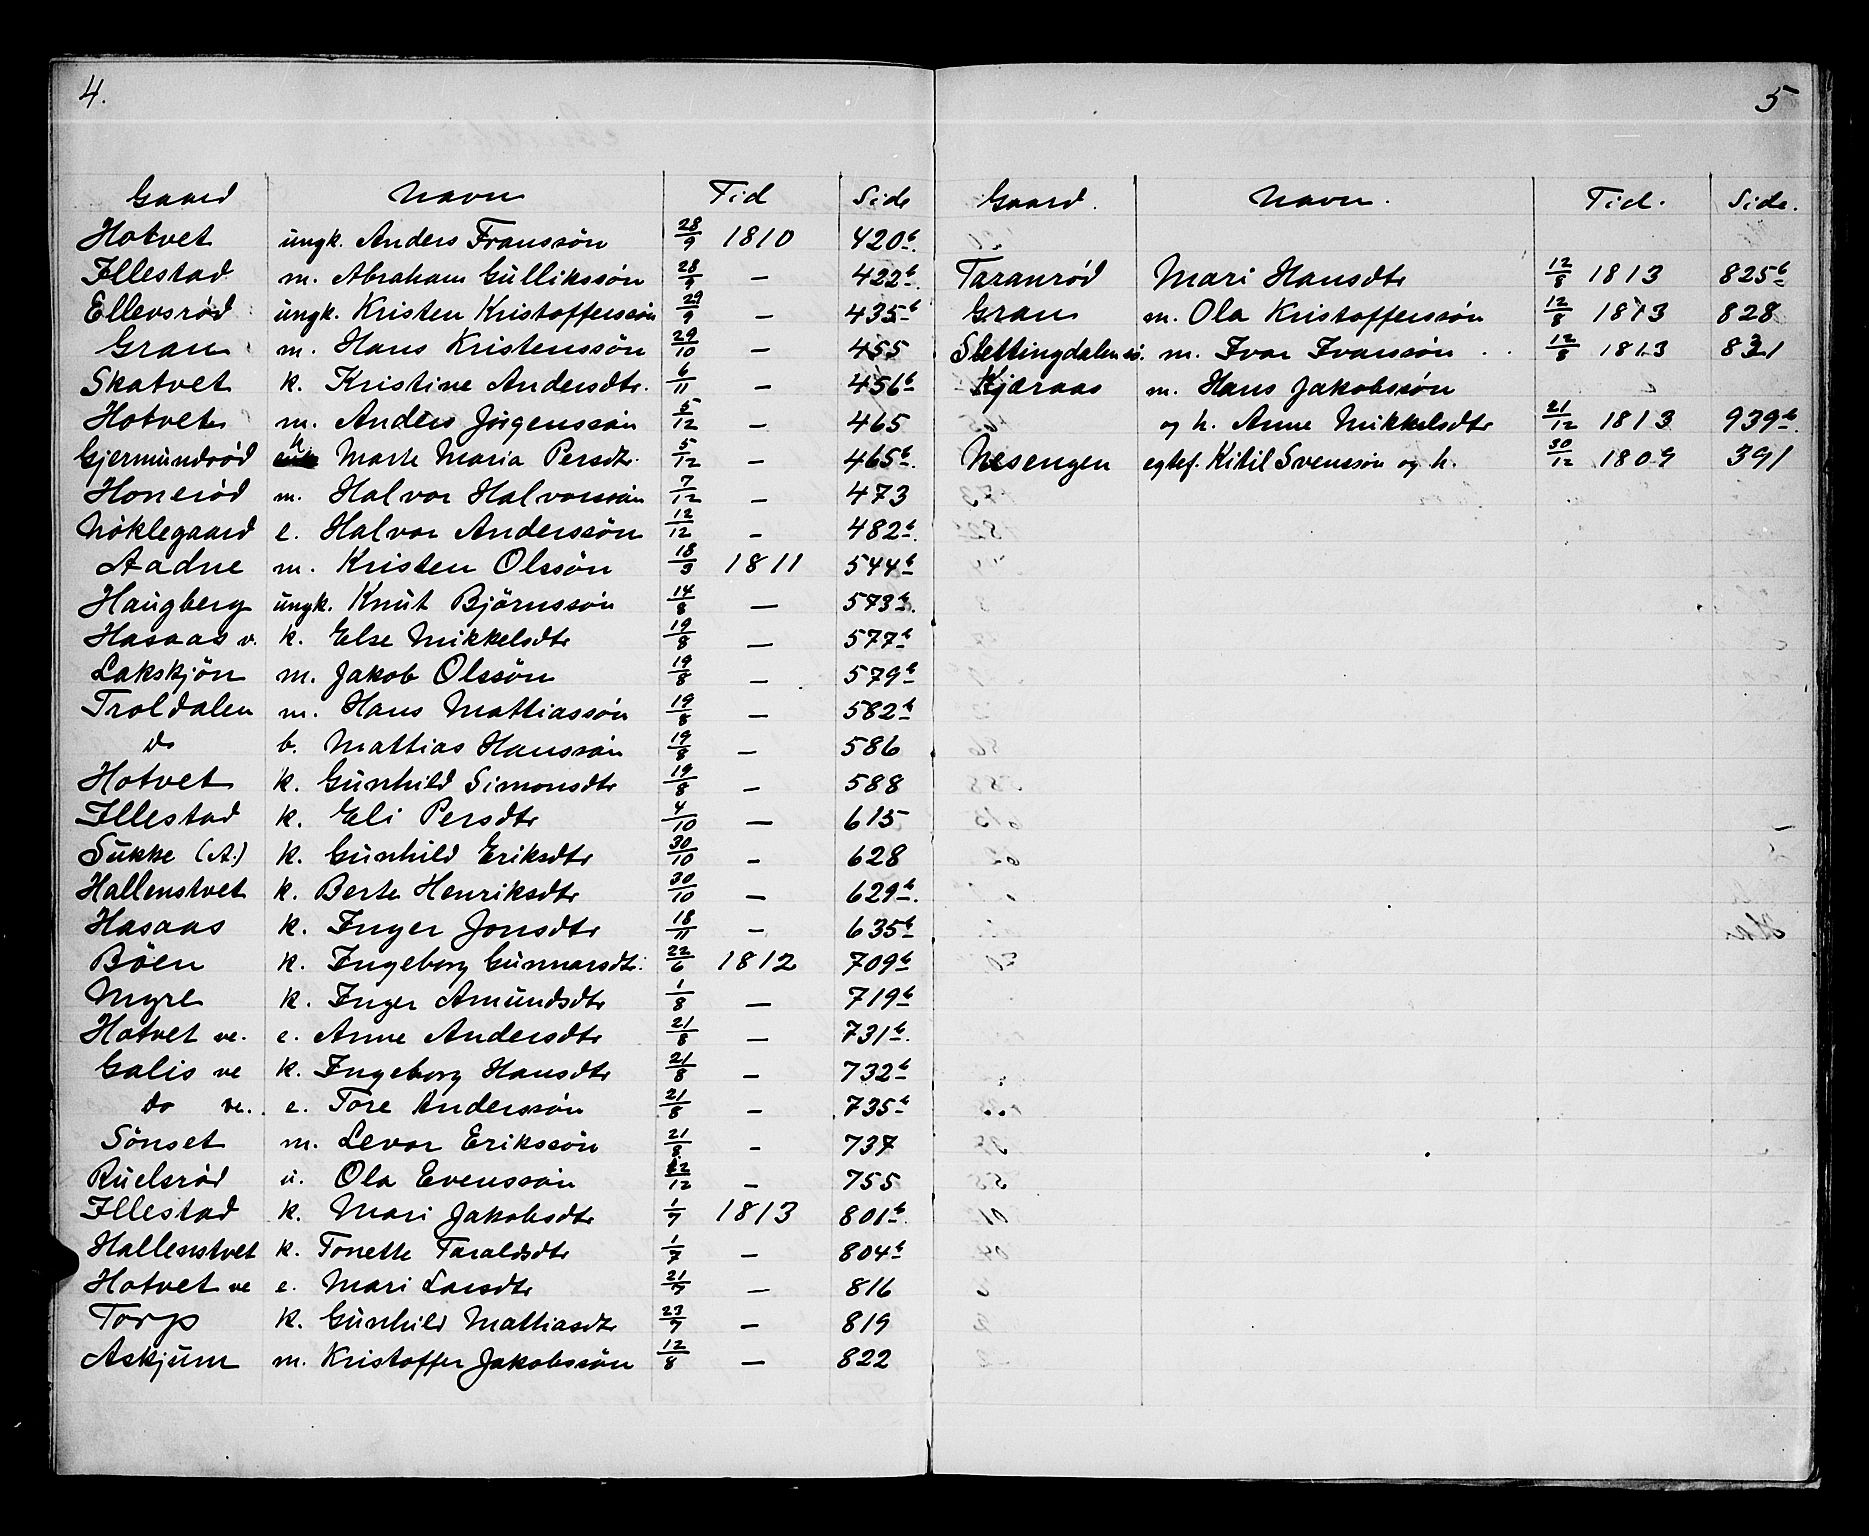 4.
Gaard Navn Tid Side
Hotvet ungk. Anders Franssøn 28/9 1810 420b.
Illestad m. Abraham Gullikssøn 28/9 — 422b.
Ellevsrød ungk. Kristen Kristofferssøn 29/9 — 435b
Gran m. Hans Kristenssøn 29/10 — 455
Skatvet k. Kristine Andersdtr. 6/11 — 456b
Hotvet m. Anders Jørgenssøn 5/12 — 465
Gjermundrød h. Marte Maria Persdtr. 5/12 — 465b.
Honerød m. Halvor Halvorssøn 7/12 — 473
Nøklegaard e. Halvor Anderssøn 12/12 — 482b.
Aadne m. Kristen Olssøn 18/3 1811 544b
Haugberg ungk. Knut Bjørnssøn 14/8 — 573b.
Hasaas v. k. Else Mikkelsdtr 19/8 — 577b
Lakskjøn m. Jakob Olssøn 19/8 — 579b
Troldalen m. Hans Mattiassøn 19/8 — 582b
do b. Mattias Hanssøn 19/8 — 586
Hotvet k. Gunhild Simonsdtr 19/8 — 588
Illestad k. Eli Persdtr 4/10 — 615
Sukke (A.) k. Gunhild Eriksdtr 30/10 — 628
Hallenstvet k. Berte Henriksdtr 30/10 — 629b.
Hasaas k. Inger Jonsdtr 18/11 — 635b
Bøen k. Ingeborg Gunnarsdtr. 22/6 1812 709b
Myre k. Inger Amundsdtr 1/8 — 719b
Hotvet ve. e. Anne Andersdtr 21/8 — 731b.
Galis ve k. Ingeborg Hansdtr 21/8 — 732b
do ve. e. Tore Anderssøn 21/8 — 735b
Sønset m. Levor Erikssøn 21/8 — 737
Ruelsrød u. Ola Evenssøn 12/12 — 755
Illestad k. Mari Jakobsdtr 1/7 1813 801b.
Hallenstvet k. Tonette Taraldsdtr 1/7 — 804b
Hotvet ve e. Mari Larsdtr 21/7 — 816
Torp k. Gunhild Mattiasdtr 23/7 — 819
Askjum m. Kristoffer Jakobssøn 12/8 — 822
5
Gaard. Navn. Tid. Side.
Taranrød Mari Hansdtr 12/8 1813 825b
Gran m. Ola Kristofferssøn 12/8 1813 828
Slettingdalen sø. m. Ivar Ivarssøn . . 12/8 1813 831
Kjæraas m. Hans Jakobssøn
og h. Anne Mikkelsdtr 21/12 1813 939b.
Nesengen egtef. Kitil Svenssøn og h. 30/12 1809 391